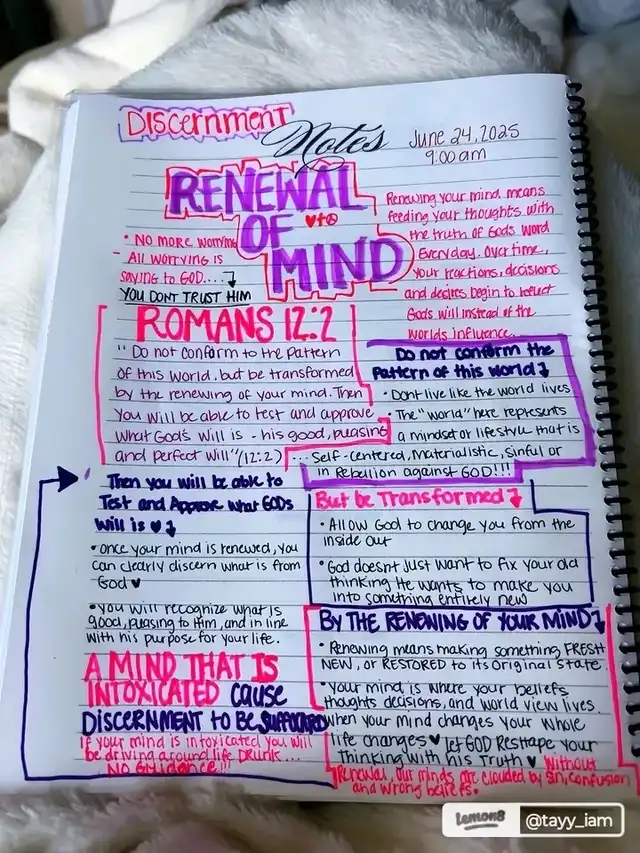 Discernment
Notes
June 24, 2025
9:00am
RENEWAL
OF
MIND
• No more worrying
- All worrying is
saying to God....
You dont trust him
Renewing your mind means
feeding your thoughts with
the truth of Gods word
Everyday. Over time,
your reactions, decisions
and desires begin to reflect
Gods will instead of the
worlds influence.
ROMANS 12:2
"Do not conform to the pattern
of this world, but be transformed
by the renewing of your mind. Then
you will be able to test and approve
what God's will is - his good, pleasing
and perfect will" (12:2)
Do not conform the
pattern of this world
• Dont live like the world lives
• The "world" here represents
a mindset or lifestyle that is
... Self-centered, materialistic, sinful or
in rebellion against GOD!!!
Then you will be able to
Test and Approve what GODs
will is
• once your mind is renewed, you
can clearly discern what is from
God
• You will recognize what is
good, pleasing to Him, and in line
with his purpose for your life.
But be Transformed
• Allow God to change you from the
inside out
• God doesnt Just want to fix your old
thinking He wants to make you
into something entirely new
BY THE RENEWING OF YOUR MIND
• Renewing means making something FRESH
NEW, or RESTORED to its original state.
• Your mind is where your beliefs
thoughts decisions, and world view lives.
when your mind changes your whole
life changes Let GOD Reshape your
Thinking with his Truth Without
Renewal, our minds are clouded by sin, confusion
and wrong beliefs.
A MIND THAT IS
INTOXICATED cause
DISCERNMENT TO BE
If your mind is intoxicated you will
be driving around life DRUNK...
NO Guidance!!!
lemon8 @tayy_iam